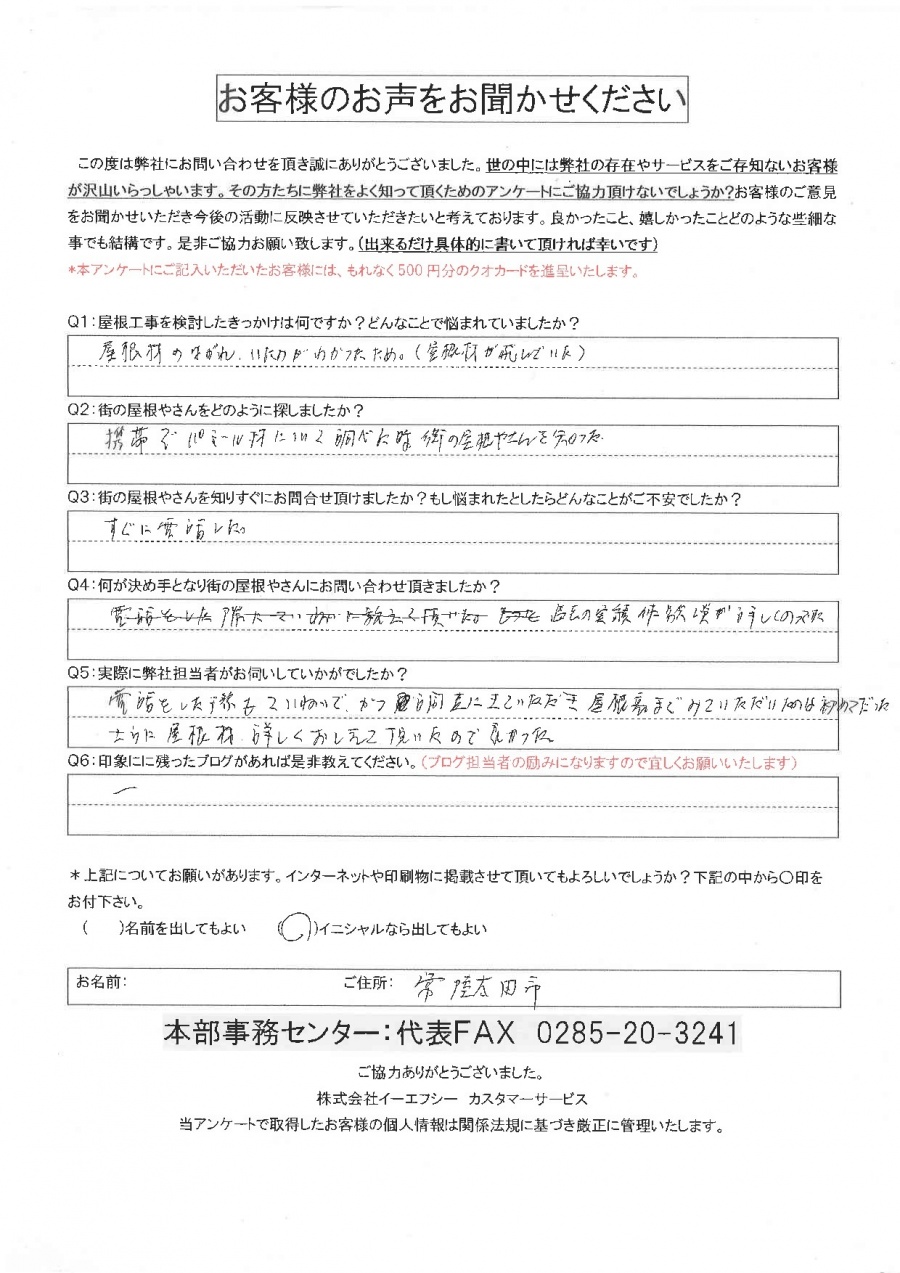 お客様のお声をお聞かせください
この度は弊社にお問い合わせを頂き誠にありがとうございました。世の中には弊社の存在やサービスをご存知ないお客様
が沢山いらっしゃいます。その方たちに弊社をよく知って頂くためのアンケートにご協力頂けないでしょうか?お客様のご意見
をお聞かせいただき今後の活動に反映させていただきたいと考えております。良かったこと、嬉しかったことどのような些細な
事でも結構です。是非ご協力お願い致します。(出来るだけ具体的に書いて頂ければ幸いです)
*本アンケートにご記入いただいたお客様には、もれなく500円分のクオカードを進呈いたします。
Q1:屋根工事を検討したきっかけは何ですか?どんなことで悩まれていましたか?
屋根材のはがれ、いたみがわかったため。(屋根材が飛んでいた)
Q2:街の屋根やさんをどのように探しましたか?
携帯でパミール材について調べた時街の屋根やさんを知った
Q3:街の屋根やさんを知りすぐにお問合せ頂けましたか?もし悩まれたとしたらどんなことがご不安でしたか?
すぐに電話した。
Q4:何が決め手となり街の屋根やさんにお問い合わせ頂きましたか?
電話をした際 ていねいに教えて頂 過去の実績 が詳しく
Q5:実際に弊社担当者がお伺いしていかがでしたか?
電話をした際も ていねいで、かつ 調査に来ていただき 屋根裏までみていただいたのは初めてだった
さらに屋根材 詳しくおしえて頂いたので良かった
Q6:印象にに残ったブログがあれば是非教えてください。(ブログ担当者の励みになりますので宜しくお願いいたします)
ー
*上記についてお願いがあります。インターネットや印刷物に掲載させて頂いてもよろしいでしょうか?下記の中から〇印を
お付下さい。
( )名前を出してもよい (○)イニシャルなら出してもよい
お名前: ご住所: 常陸太田市
本部事務センター:代表FAX 0285-20-3241
ご協力ありがとうございました。
株式会社イーエフシー カスタマーサービス
当アンケートで取得したお客様の個人情報は関係法規に基づき厳正に管理いたします。